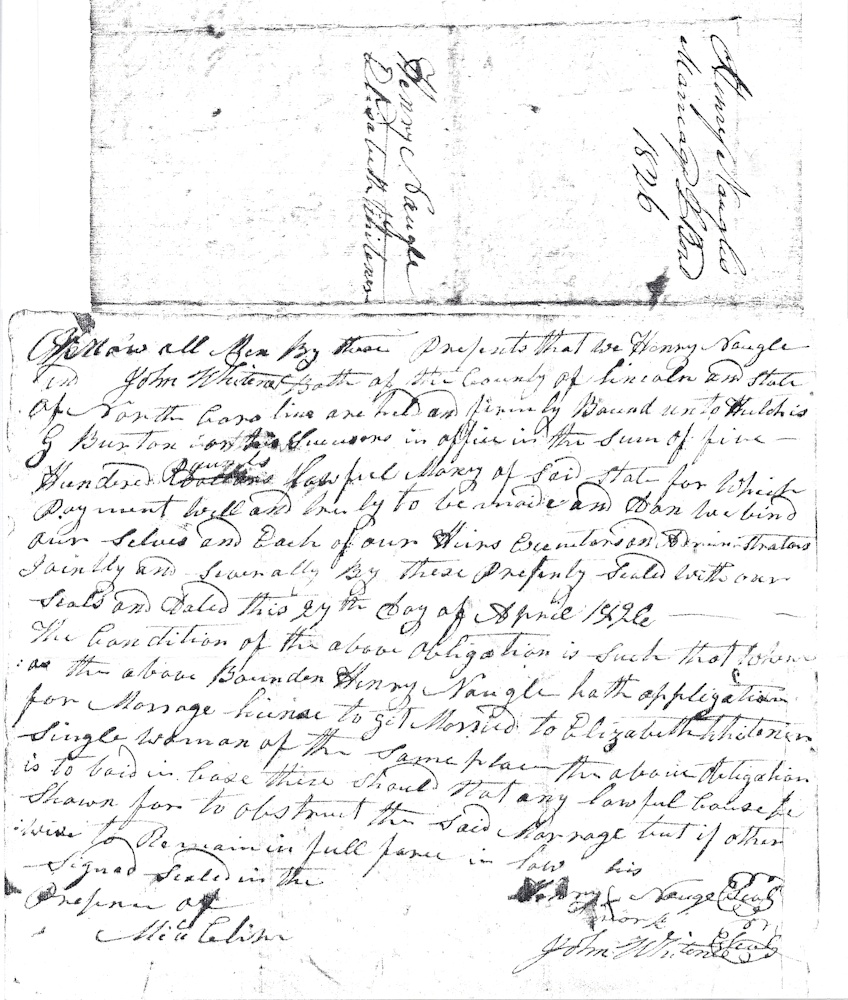 Henry Naugles
Marriage Bond
1826
Henry Naugle
Elisabeth Whitener
Know all Men By these Presents that we Henry Naugle
and John Whitener Both of the County of Lincoln and State
of North Carolina are held and firmly Bound unto Hutchis
G Burton Successors in office in the Sum of five —
Hundred Pounds lawful Money of Said State for Which
Payment Well and truly to be made and Don we bind
our Selves and Each of our Heirs Executors and Administrators
Jointly and Severally By these Presently Sealed with our
Seals and Dated this 27th Day of April 1826 —
The Condition of the above Obligation is Such that Where
as the above Bounden Henry Naugle hath appligation
for Marrage license to get Married to Elizabeth Whitener
Single woman of the Same place the above Obligation
is to void in Case there Should Not any lawful Cause be
Shown for to obstruct the Said Marrage but if other
wise to Remain in full force in law
Signed Sealed in the his
Presence of Henry Nauge Seal
mark
John Whitener Seal